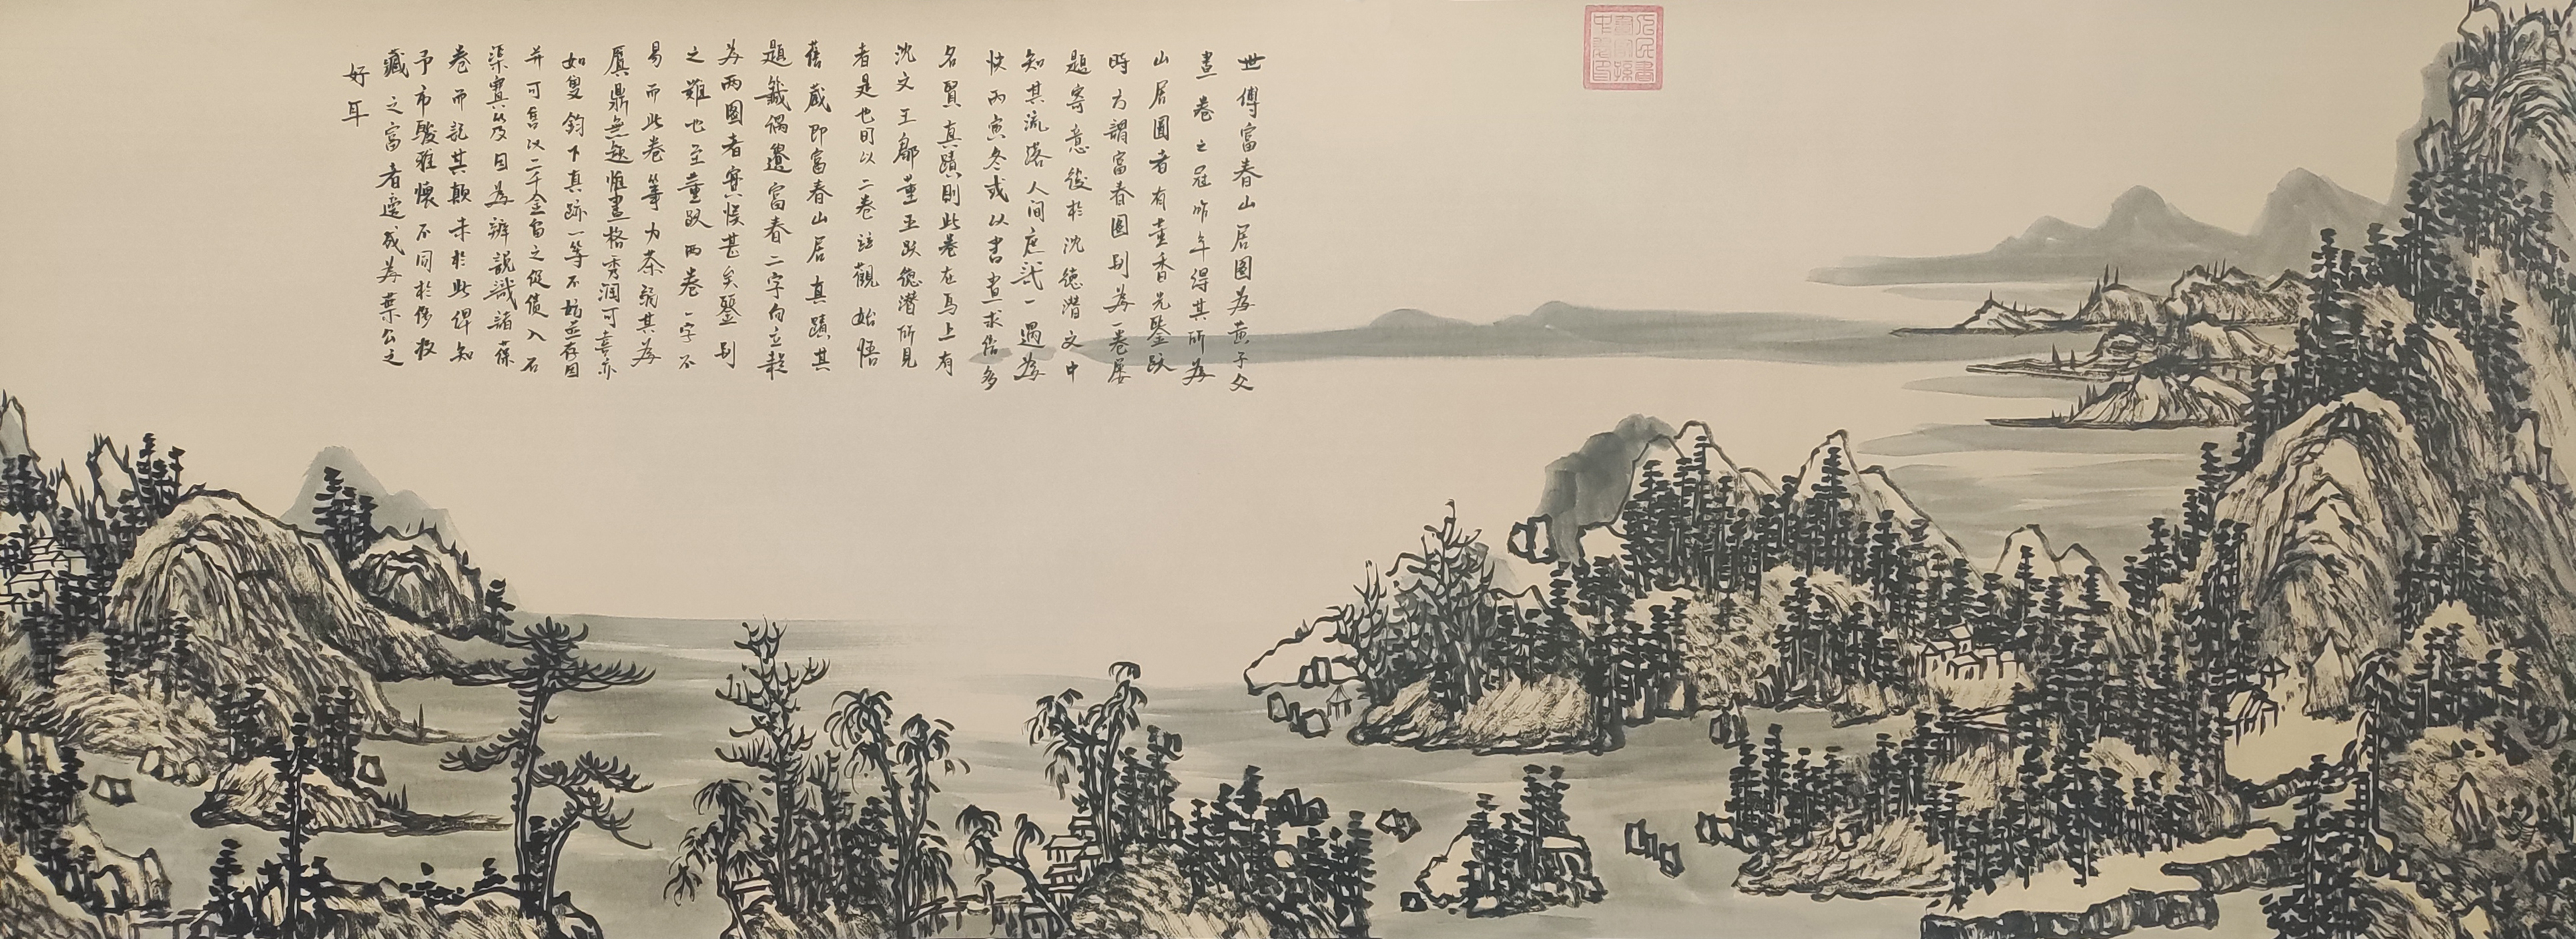 世傅富春山居圖為黄子久
畫卷之冠昨年得其所為
山居圖者有董香光鑒跋
時方謂富春圖别為一卷屡
題寄意後於沈德潜文中
知其流落人间庶㡬一遇為
快丙寅冬或以書畫求售多
名賢真蹟則此卷在焉上有
沈文王鄒董五跋德潜所見
者是也因以二卷諗觀始悟
舊蔵即富春山居真蹟其
題籤偶遺富春二字向立説
為两圖者實悞甚矣鑒别
之難也至董跋两卷一字不
易而此卷筆力荼弱其為
贋鼎無疑惟畫格秀润可喜亦
如雙鈞下真跡一等不妨並存因
并可售以二千金留之俾侪入石
渠寶笈因為辨説識諸葆
卷而記其颠末於此俾知
予市駿雅懷不同於侈收
藏之富者遽成為葉公之
好耳